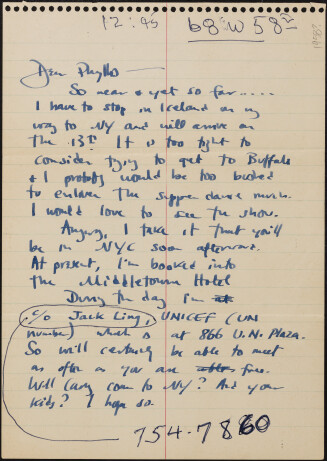 12:45 68 W 58th
1958?
Dear Phyllis —
So near & yet so far.....
I have to stop in Iceland on my
way to NY and will arrive on
The 13th. It is too tight to
consider trying to get to Buffalo
& I probably would be too booked
to enliven the supper dance much.
I would love to see the show.
Anyway, I take it that you'll
be in NYC soon afterward.
At present, I'm booked into
the Middletown Hotel
During the day I'm at
c/o Jack Ling, UNICEF (UN
number) which is at 866 U.N. Plaza.
So will certainly be able to meet
as often as you are free.
Will Cary come to NY? And your
kids? I hope so.
754-7860